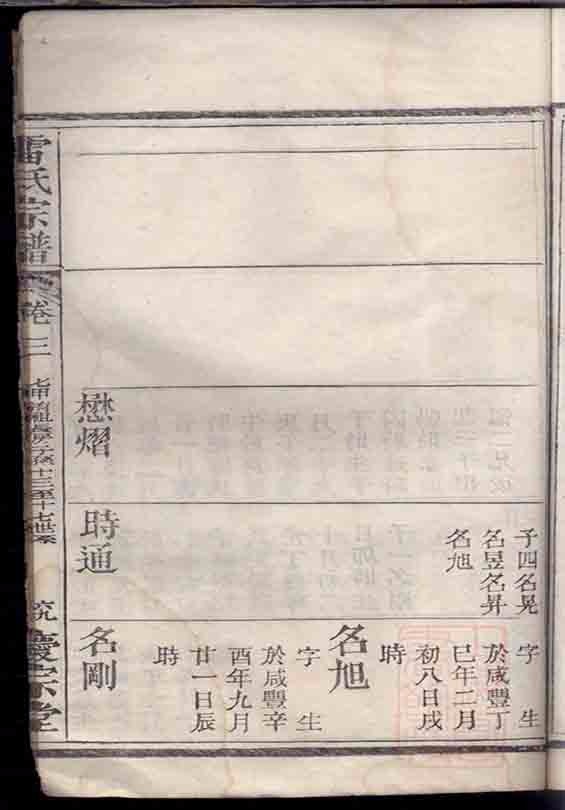 子四名晃
名昱名昇
名旭
名旭
字 生
於咸豐丁
巳年二月
初八日戌
時
懋熠
時通
名剛
字 生
於咸豐辛
酉年九月
廿一日辰
時
雷氏宗譜
卷三
慶宗堂